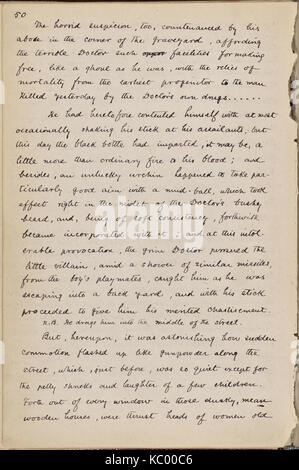 50
The horrid suspicion, too, countenanced by his
abode in the corner of the graveyard, affording
the terrible Doctor such facilities for making
free, like a ghoul as he was, with the relics of
mortality from the earliest progenitor to the man
killed yesterday by the Doctor's own drugs......
He had heretofore contented himself with at most
occasionally shaking his stick at his assailants; but
this day the black bottle had imparted, it may be, a
little more than ordinary fire to his blood; and
besides, an unlucky urchin happened to take par-
ticularly good aim with a mud-ball, which took
effect right in the midst of the Doctor's bushy
beard, and, being of soft consistency, forthwith
became incorporated with it. and at this intol-
erable provocation, the grim Doctor pursued the
little villain, amid a shower of similar missiles,
from the boy's playmates, caught him as he was
escaping into a back yard, and with his stick
proceeded to give him his merited chastisement.
N.B. He drags him into the middle of the street.
But, hereupon, it was astonishing how sudden
commotion flashed up like gunpowder along the
street, which, just before, was so quiet except for
the petty shrieks and laughter of a few children.
Forth out of every window in those dusky, mean
wooden houses, were thrust heads of women old
alamy
Image ID: KC00C6
www.alamy.com